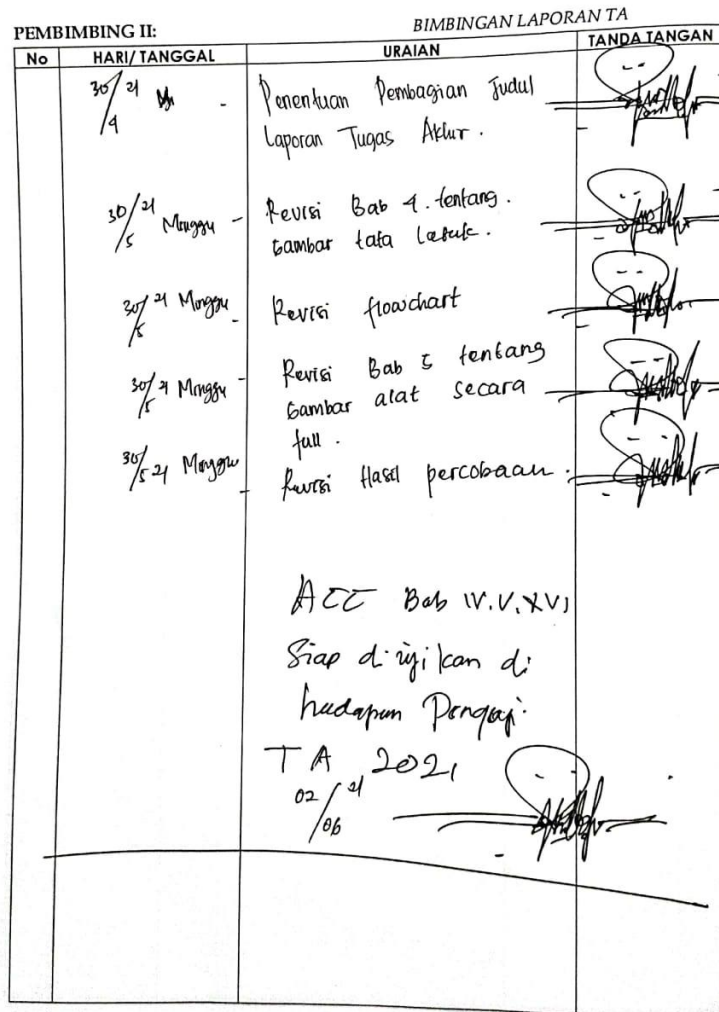 PEMBIMBING II: BIMBINGAN LAPORAN TA
No HARI/TANGGAL URAIAN TANDA TANGAN
30/4 21 - Penentuan Pembagian Judul
Laporan Tugas Akhir.
30/5 21 Minggu - Revisi Bab 4. tentang.
Gambar tata Letak.
30/5 21 Minggu - Revisi flowchart
30/5 21 Minggu - Revisi Bab 5 tentang
Gambar alat secara
full.
30/5 21 Minggu - Revisi Hasil percobaan.
ACC Bab IV.V.
Siap di ujikan di
hadapan Penguji
TA 2021
02/06 21